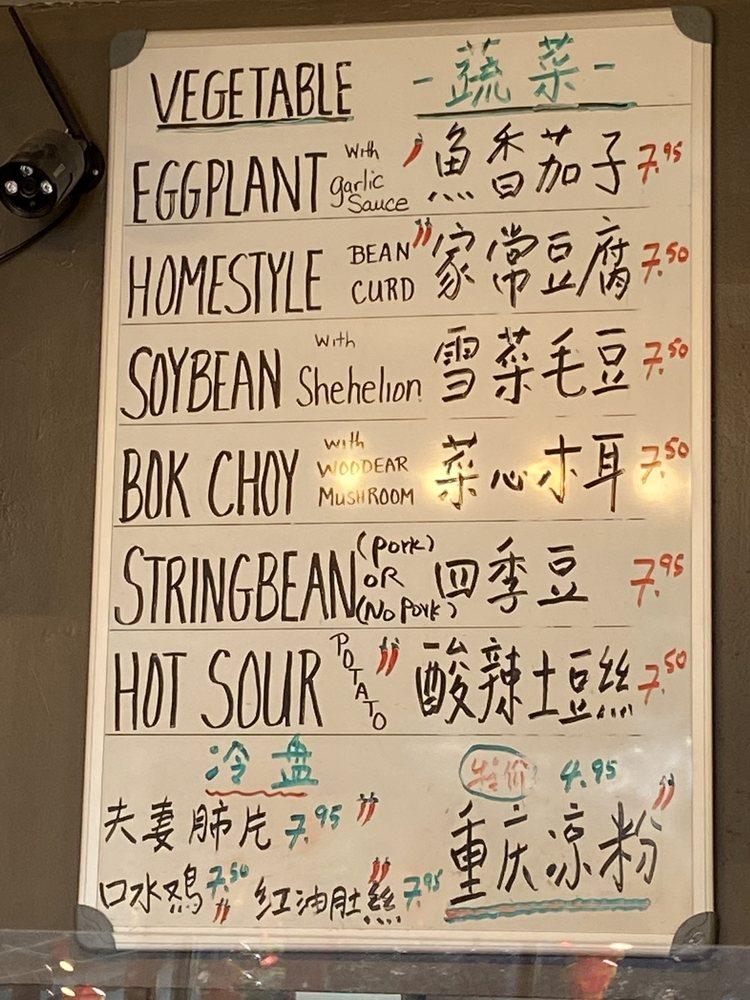 VEGETABLE -蔬菜-
EGGPLANT with garlic Sauce 魚香茄子 7.95
HOMESTYLE BEAN CURD 家常豆腐 7.50
SOYBEAN with Shehelion 雪菜毛豆 7.50
BOK CHOY with WOODEAR MUSHROOM 菜心木耳 7.50
STRINGBEAN (pork) OR (No Pork) 四季豆 7.95
HOT SOUR POTATO 酸辣土豆絲 7.50
冷盘
夫妻肺片 7.95
口水鸡 7.50 红油肚絲 7.95
特价 4.95
重庆凉粉